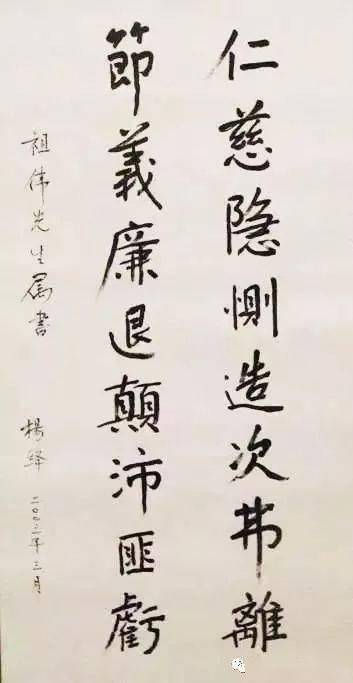 仁慈隐恻造次弗離
節義廉退顛沛匪虧
祖伟先生属書
楊绛
二〇〇三年三月